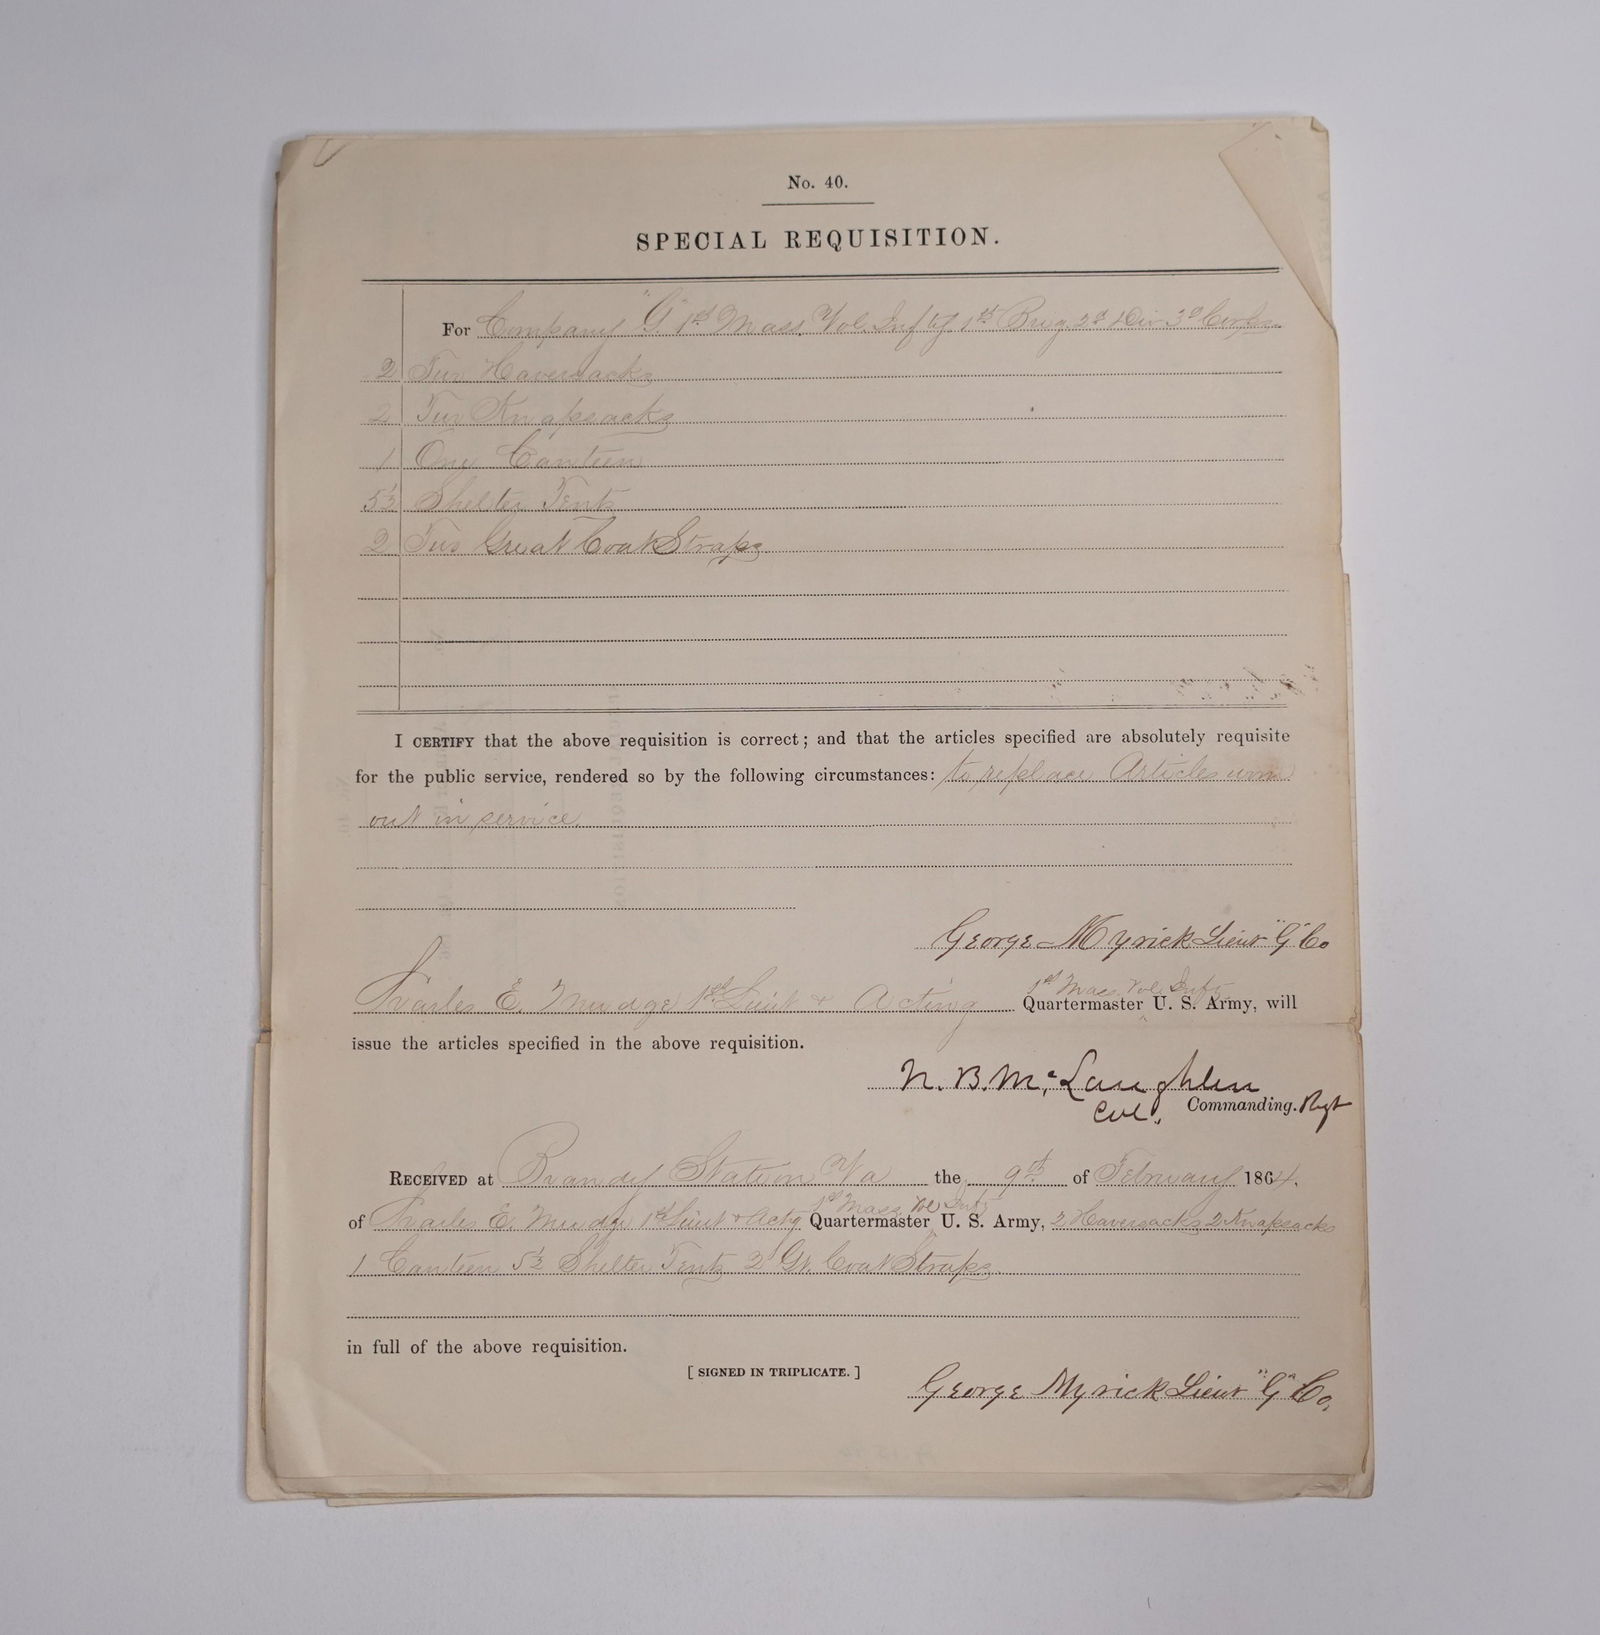 No. 40.
SPECIAL REQUISITION.
For Company "G" 1st Mass. Vol. Inf'ty 1st Brig. 2d Div 3d Corps
2 Two Haversacks
2 Two Knapsacks
1 One Canteen
5½ Shelter Tents
2 Two Great Coat Straps
I CERTIFY that the above requisition is correct; and that the articles specified are absolutely requisite
for the public service, rendered so by the following circumstances: to replace Articles worn
out in service.
George Myrick Lieut "G" Co
Charles E. Mudge 1st Lieut & Acting 1st Mass. Vol. Infty Quartermaster ^ U. S. Army, will
issue the articles specified in the above requisition.
N. B. McLaughlen
Col. Commanding. Regt
RECEIVED at Brandy Station Va the 9th of February 1864.
of Charles E. Mudge 1st Lieut & Actg 1st Mass Vol Infty Quartermaster ^ U. S. Army, 2 Haversacks 2 Knapsacks
1 Canteen 5½ Shelter Tents 2 Gt. Coat Straps
in full of the above requisition.
[SIGNED IN TRIPLICATE.]
George Myrick Lieut "G" Co.